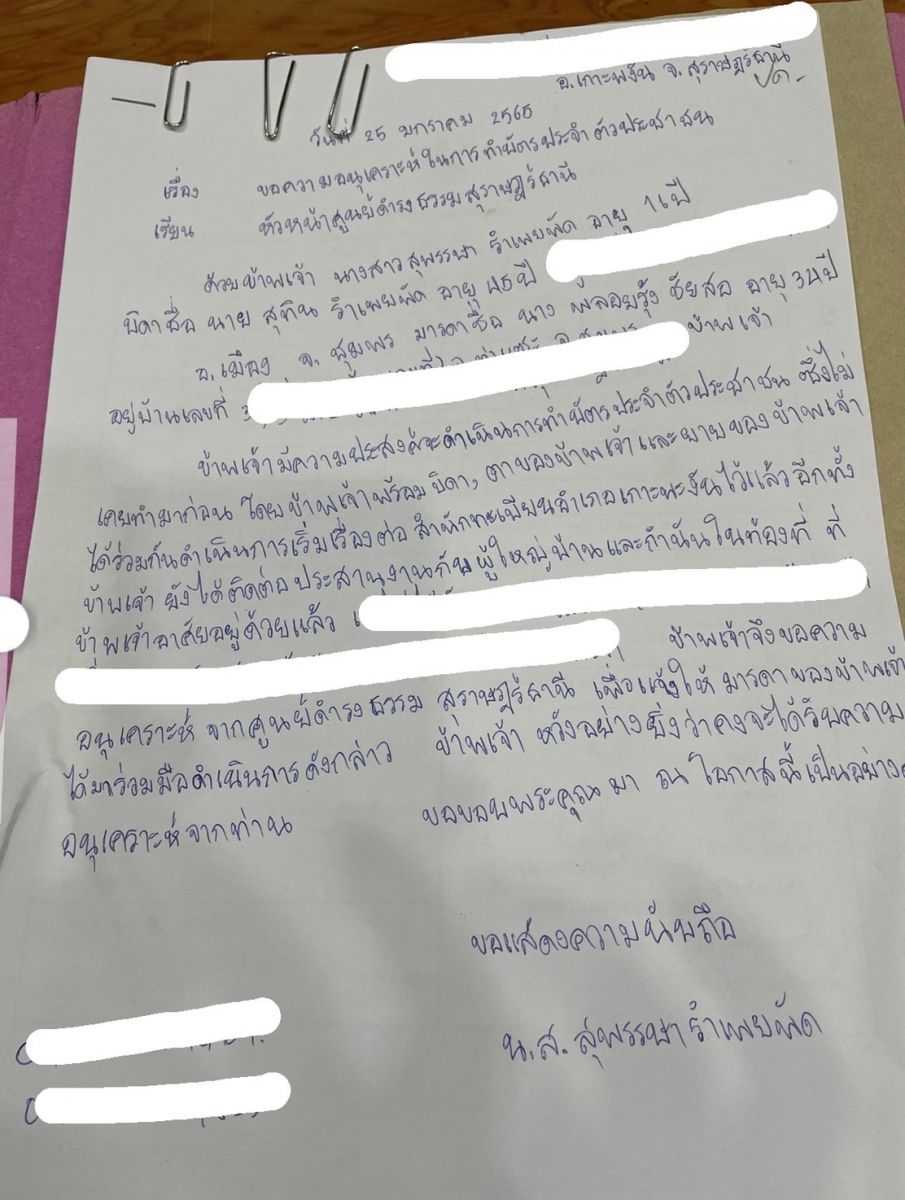 อ.เกาะพงัน จ.สุราษฎร์ธานี
วันที่ 25 มกราคม 2565
เรื่อง ขอความอนุเคราะห์ในการทำบัตรประจำตัวประชาชน
เรียน หัวหน้าศูนย์ดำรงธรรมสุราษฎร์ธานี
ด้วยข้าพเจ้า นางสาวสุพรรษา รำเพยพัด อายุ
บิดาชื่อ นาย สุทิน รำเพยพัด อายุ 45 ปี
อ.เมือง จ. ชุมพร มารดาชื่อ นาง พลอยรุ้ง ชัยสอ อายุ 34 ปี
อยู่บ้านเลขที่ ข้าพเจ้า
ข้าพเจ้ามีความประสงค์จะดำเนินการทำบัตรประจำตัวประชาชน ซึ่งไม่
เคยทำมาก่อน โดยข้าพเจ้าพร้อมบิดา, ตาของข้าพเจ้าและยายของข้าพเจ้า
ได้ร่วมกันดำเนินการเริ่มเรื่องต่อ สำนักทะเบียนอำเภอเกาะพะงันไว้แล้วอีกทั้ง
ข้าพเจ้า ยังได้ติดต่อประสานงานกับผู้ใหญ่บ้านและกำนันในท้องที่ ที่
ข้าพเจ้าอาศัยอยู่ด้วยแล้ว
ข้าพเจ้าจึงขอความ
อนุเคราะห์ จากศูนย์ดำรงธรรม สุราษฎร์ธานี เพื่อแจ้งให้ มารดาของข้าพเจ้า
ได้มาร่วมมือดำเนินการดังกล่าว ข้าพเจ้า หวังอย่างยิ่งว่าคงจะได้รับความ
อนุเคราะห์จากท่าน ขอขอบพระคุณมา ณ โอกาสนี้เป็นอย่าง
ขอแสดงความนับถือ
น.ส. สุพรรษา รำเพยพัด